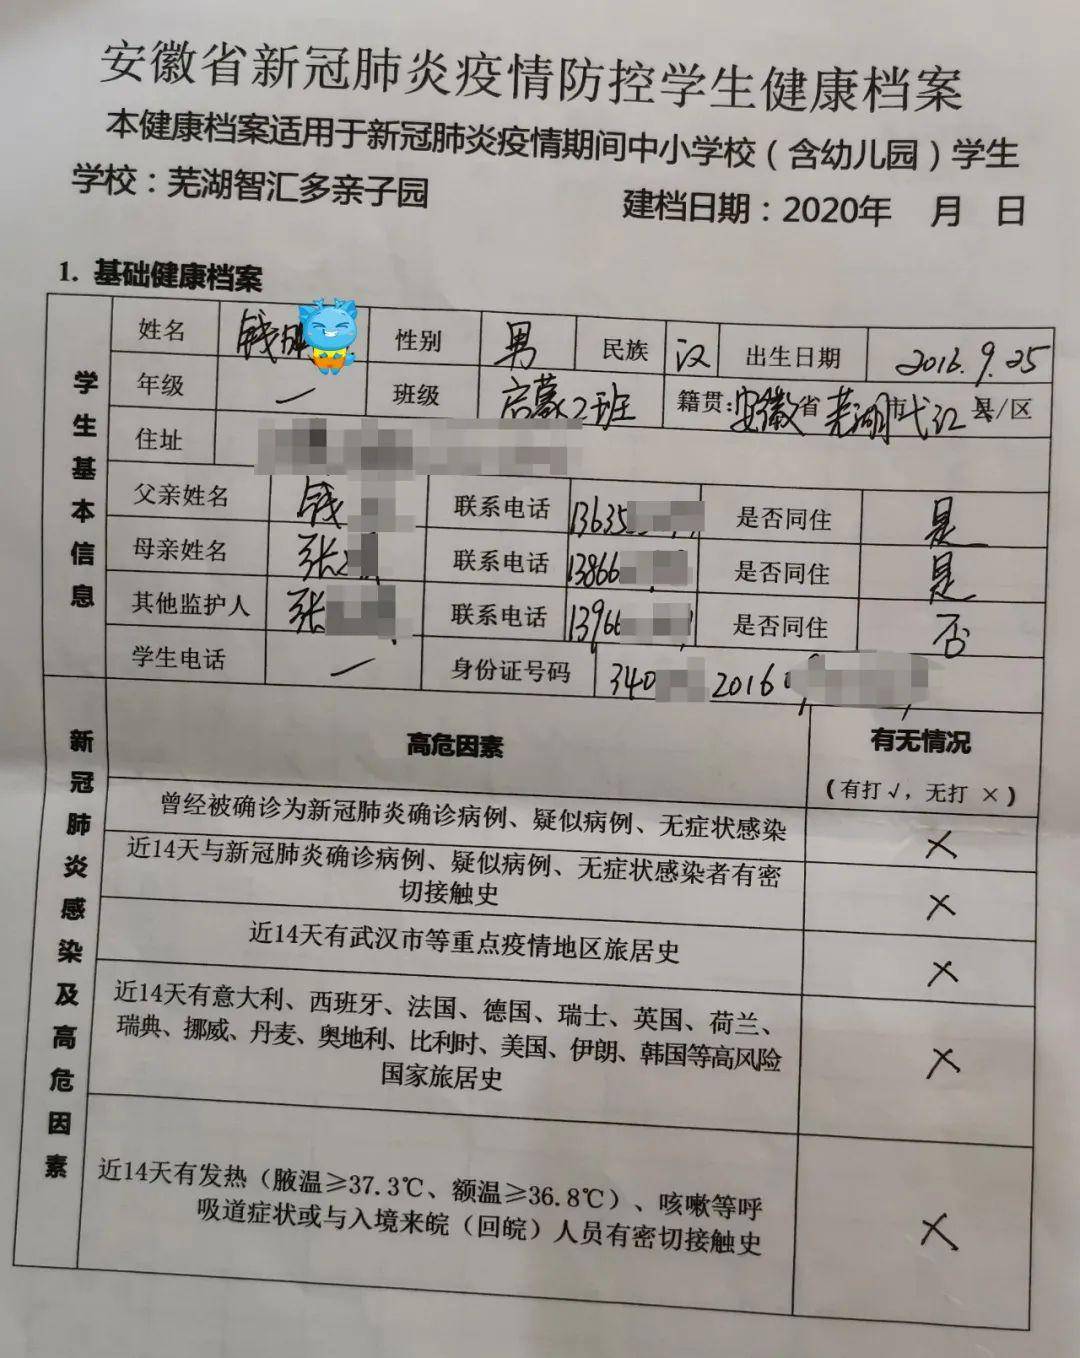 安徽省新冠肺炎疫情防控学生健康档案
本健康档案适用于新冠肺炎疫情期间中小学校（含幼儿园）学生
学校：芜湖智汇多亲子园 建档日期：2020年 月 日
1. 基础健康档案
学生基本信息
姓名 钱 性别 男 民族 汉 出生日期 2016.9.25
年级 一 班级 启蒙2班 籍贯:安徽省芜湖市弋江县/区
住址
父亲姓名 钱 联系电话 13635 是否同住 是
母亲姓名 张 联系电话 13866 是否同住 是
其他监护人 张 联系电话 13966 是否同住 否
学生电话 一 身份证号码 340 2016
新冠肺炎感染及高危因素
高危因素 有无情况
（有打√，无打 ×）
曾经被确诊为新冠肺炎确诊病例、疑似病例、无症状感染 ×
近14天与新冠肺炎确诊病例、疑似病例、无症状感染者有密
切接触史 ×
近14天有武汉市等重点疫情地区旅居史 ×
近14天有意大利、西班牙、法国、德国、瑞士、英国、荷兰、
瑞典、挪威、丹麦、奥地利、比利时、美国、伊朗、韩国等高风险 ×
国家旅居史
近14天有发热（腋温≥37.3℃、额温≥36.8℃）、咳嗽等呼
吸道症状或与入境来皖（回皖）人员有密切接触史 ×